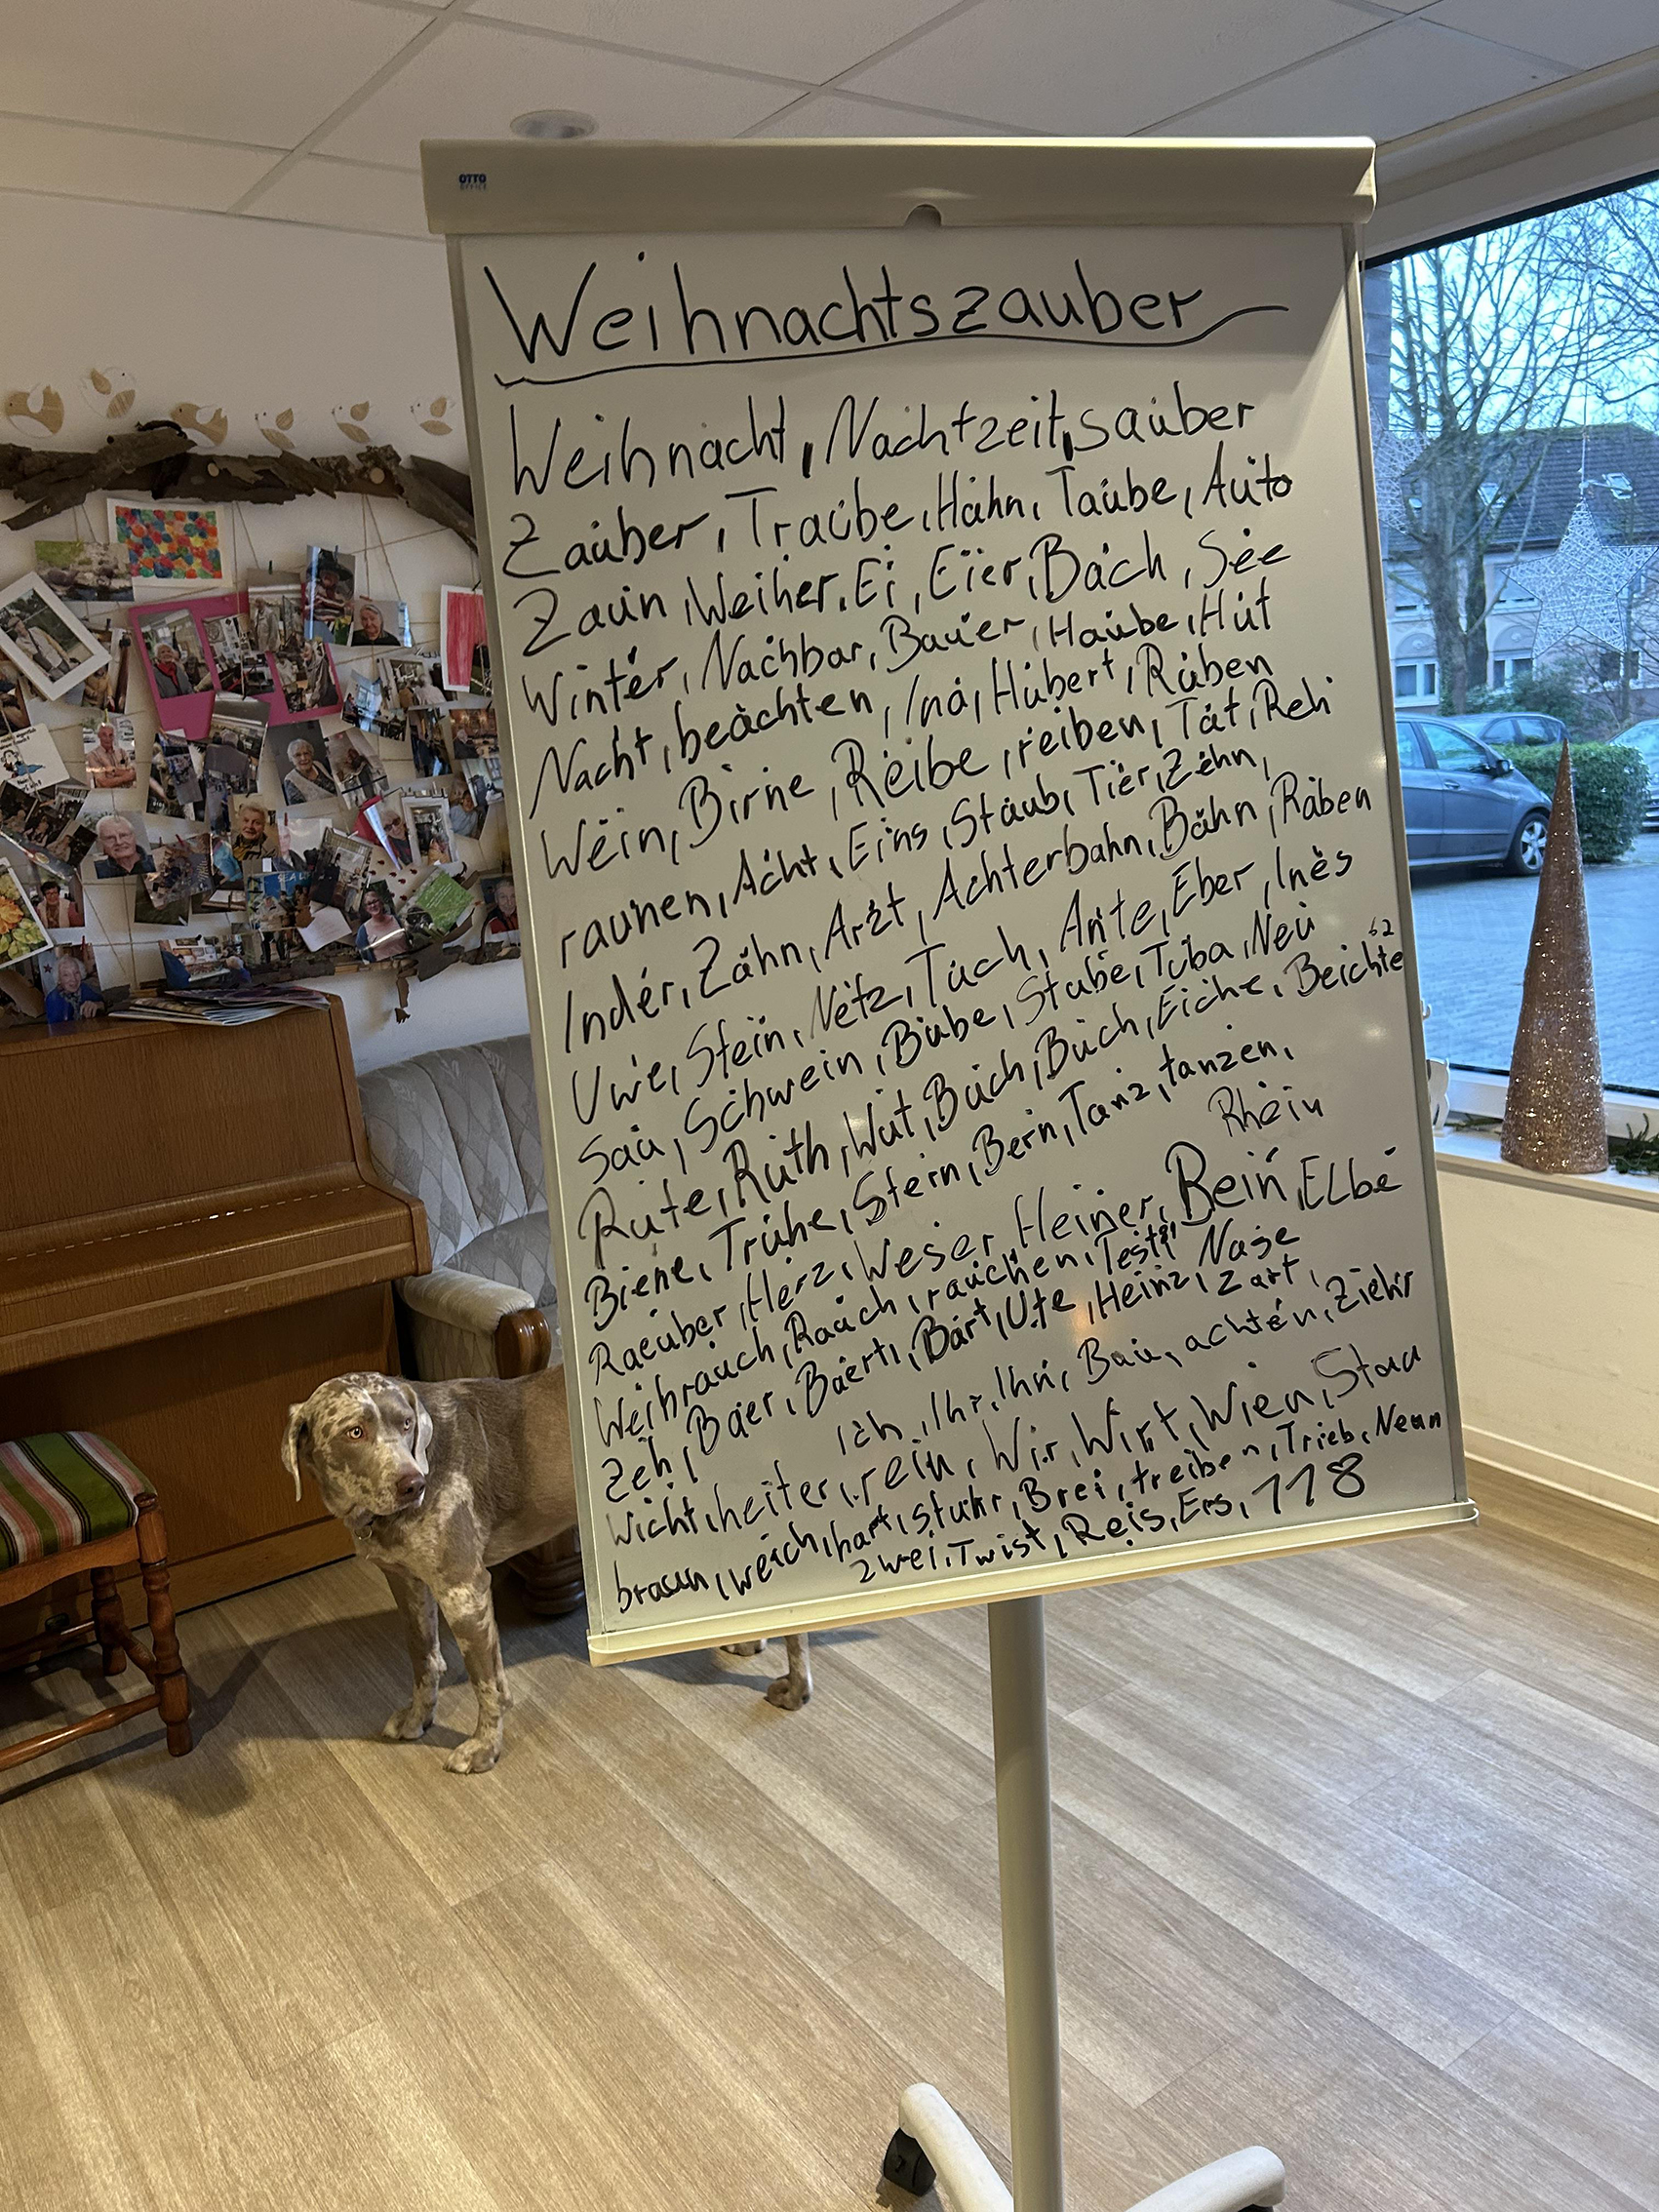 OTTO
OFFICE
Weihnachtszauber
Weihnacht, Nachtzeit, sauber
Zauber, Traube, Hahn, Taube, Auto
Zaun, Weiher, Ei, Eier, Bach, See
Winter, Nachbar, Bauer, Haube, Hut
Nacht, beachten, Ina, Hubert, Rüben
Wein, Birne, Reibe, reiben, Tat, Reh
raunen, Acht, Eins, Staub, Tier, Zehn,
Inder, Zahn, Arzt, Achterbahn, Bahn, Raben
Uwe, Stein, Netz, Tuch, Ante, Eber, Ines
Sau, Schwein, Bube, Stube, Tuba, Neu
62
Rute, Ruth, Wut, Buch, Buch, Eiche, Beichte
Biene, Truhe, Stern, Bern, Tanz, tanzen,
Rhein
Raeuber, Herz, Weser, Heiner, Bein, Elbe
Weihrauch, Rauch, rauchen, Test, Nase
Zeh, Baer, Baerti, Bart, Ute, Heinz, zart,
Ich, Ihr, Ihn, Bau, achten, Ziehr
Wicht, heiter, rein, Wir, Wirt, Wien, Stau
braun, weich, hart, stuhr, Brei, treiben, Trieb, Neun
zwei, Twist, Reis, Eis, 118